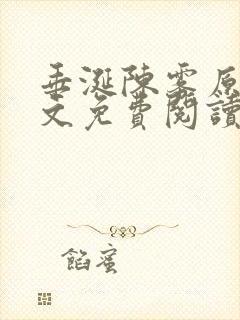 垂涎陳霧原
文免費閱讀
餡蜜